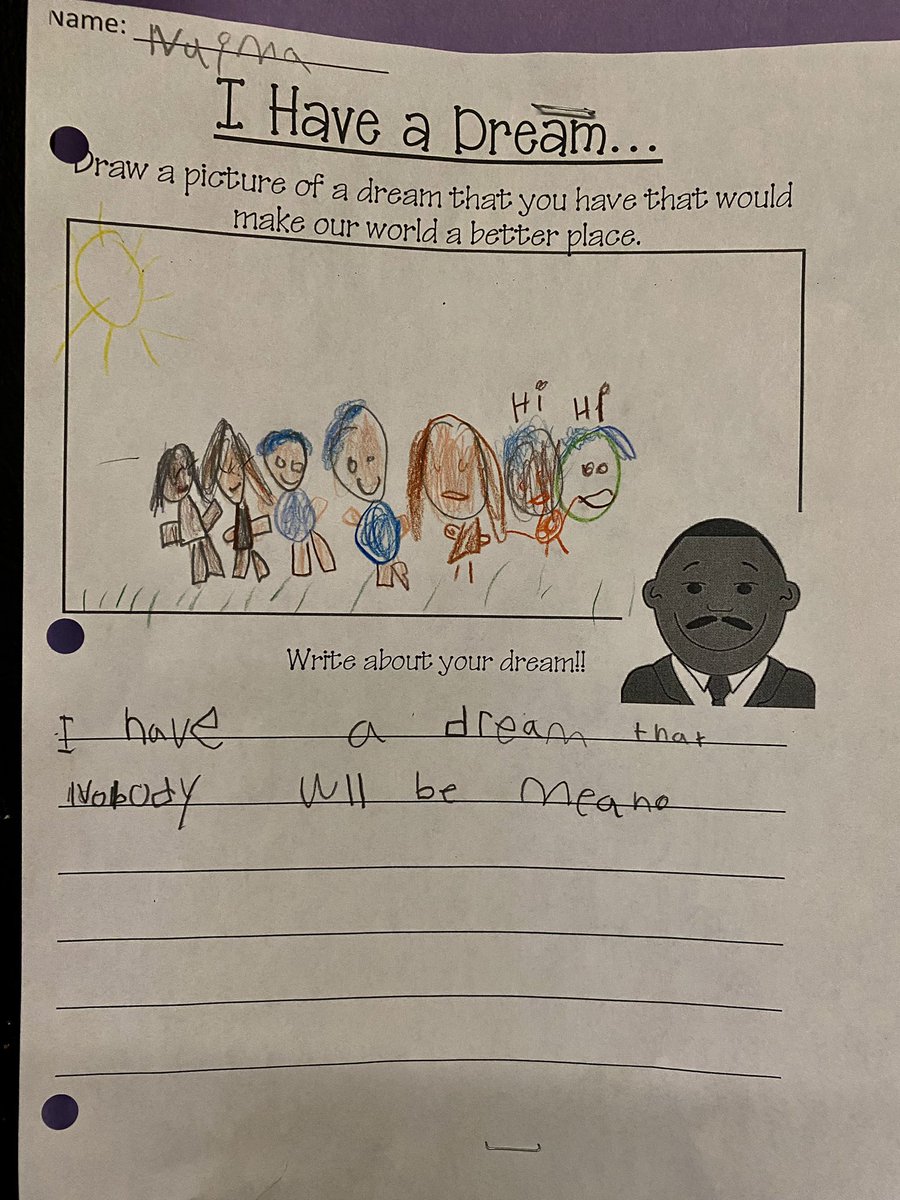 Name: Naima
I Have a Dream...
Draw a picture of a dream that you have that would
make our world a better place.
Hi Hi
Write about your dream!!
I have a dream that
Nobody Wll be Meano